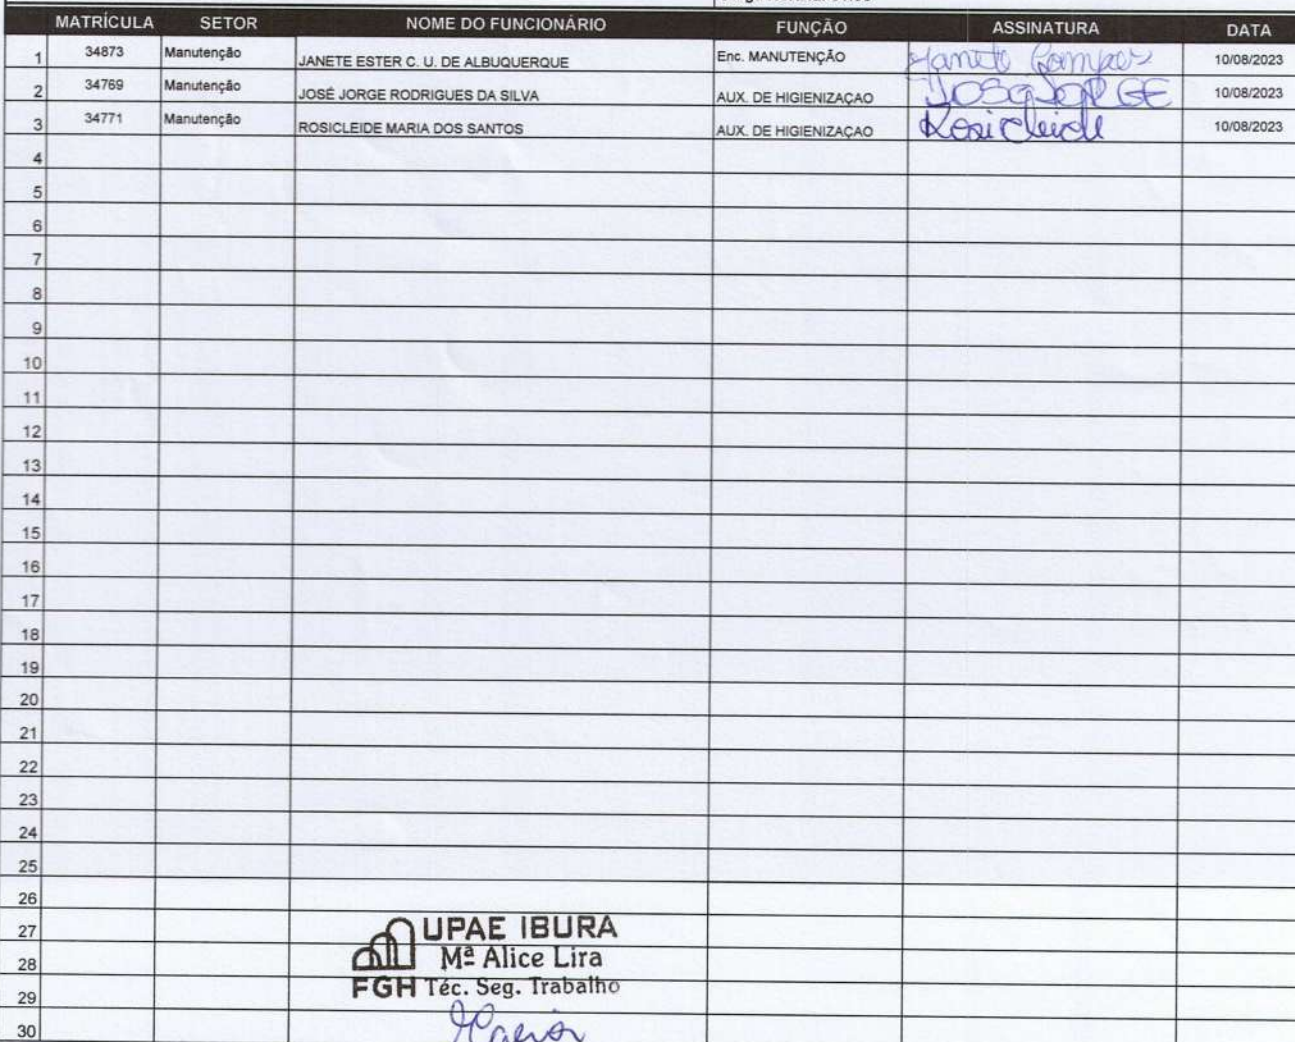 MATRÍCULA SETOR NOME DO FUNCIONÁRIO FUNÇÃO ASSINATURA DATA
1 34873 Manutenção JANETE ESTER C. U. DE ALBUQUERQUE Enc. MANUTENÇÃO Janete Campos 10/08/2023
2 34769 Manutenção JOSÉ JORGE RODRIGUES DA SILVA AUX. DE HIGIENIZAÇAO JOSE JORGE 10/08/2023
3 34771 Manutenção ROSICLEIDE MARIA DOS SANTOS AUX. DE HIGIENIZAÇAO Rosicleide 10/08/2023
4
5
6
7
8
9
10
11
12
13
14
15
16
17
18
19
20
21
22
23
24
25
26
27
28
29
30
UPAE IBURA
Mª Alice Lira
FGH Téc. Seg. Trabalho